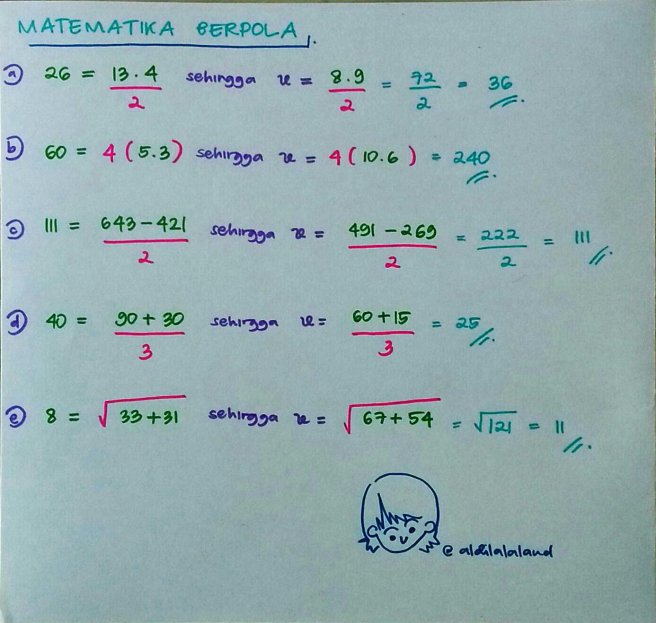 MATEMATIKA BERPOLA
a) 26 = 13.4/2 sehingga x = 8.9/2 = 72/2 = 36
b) 60 = 4(5.3) sehingga x = 4(10.6) = 240
c) 111 = 643-421/2 sehingga x = 491-269/2 = 222/2 = 111
d) 40 = 90+30/3 sehingga x = 60+15/3 = 25
e) 8 = √33+31 sehingga x = √67+54 = √121 = 11
@aldilalaland